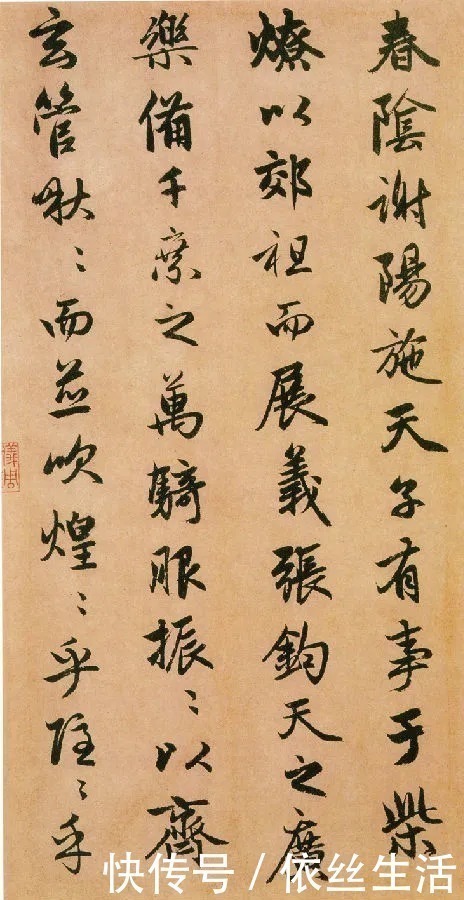 春陰謝陽施天子有事于柴
燎以郊祖而展義張鈞天之廣
樂備千乘之萬騎服振〻以齊
玄管啾〻而並吹煌〻乎隱〻乎
儀周
快传号/依丝生活